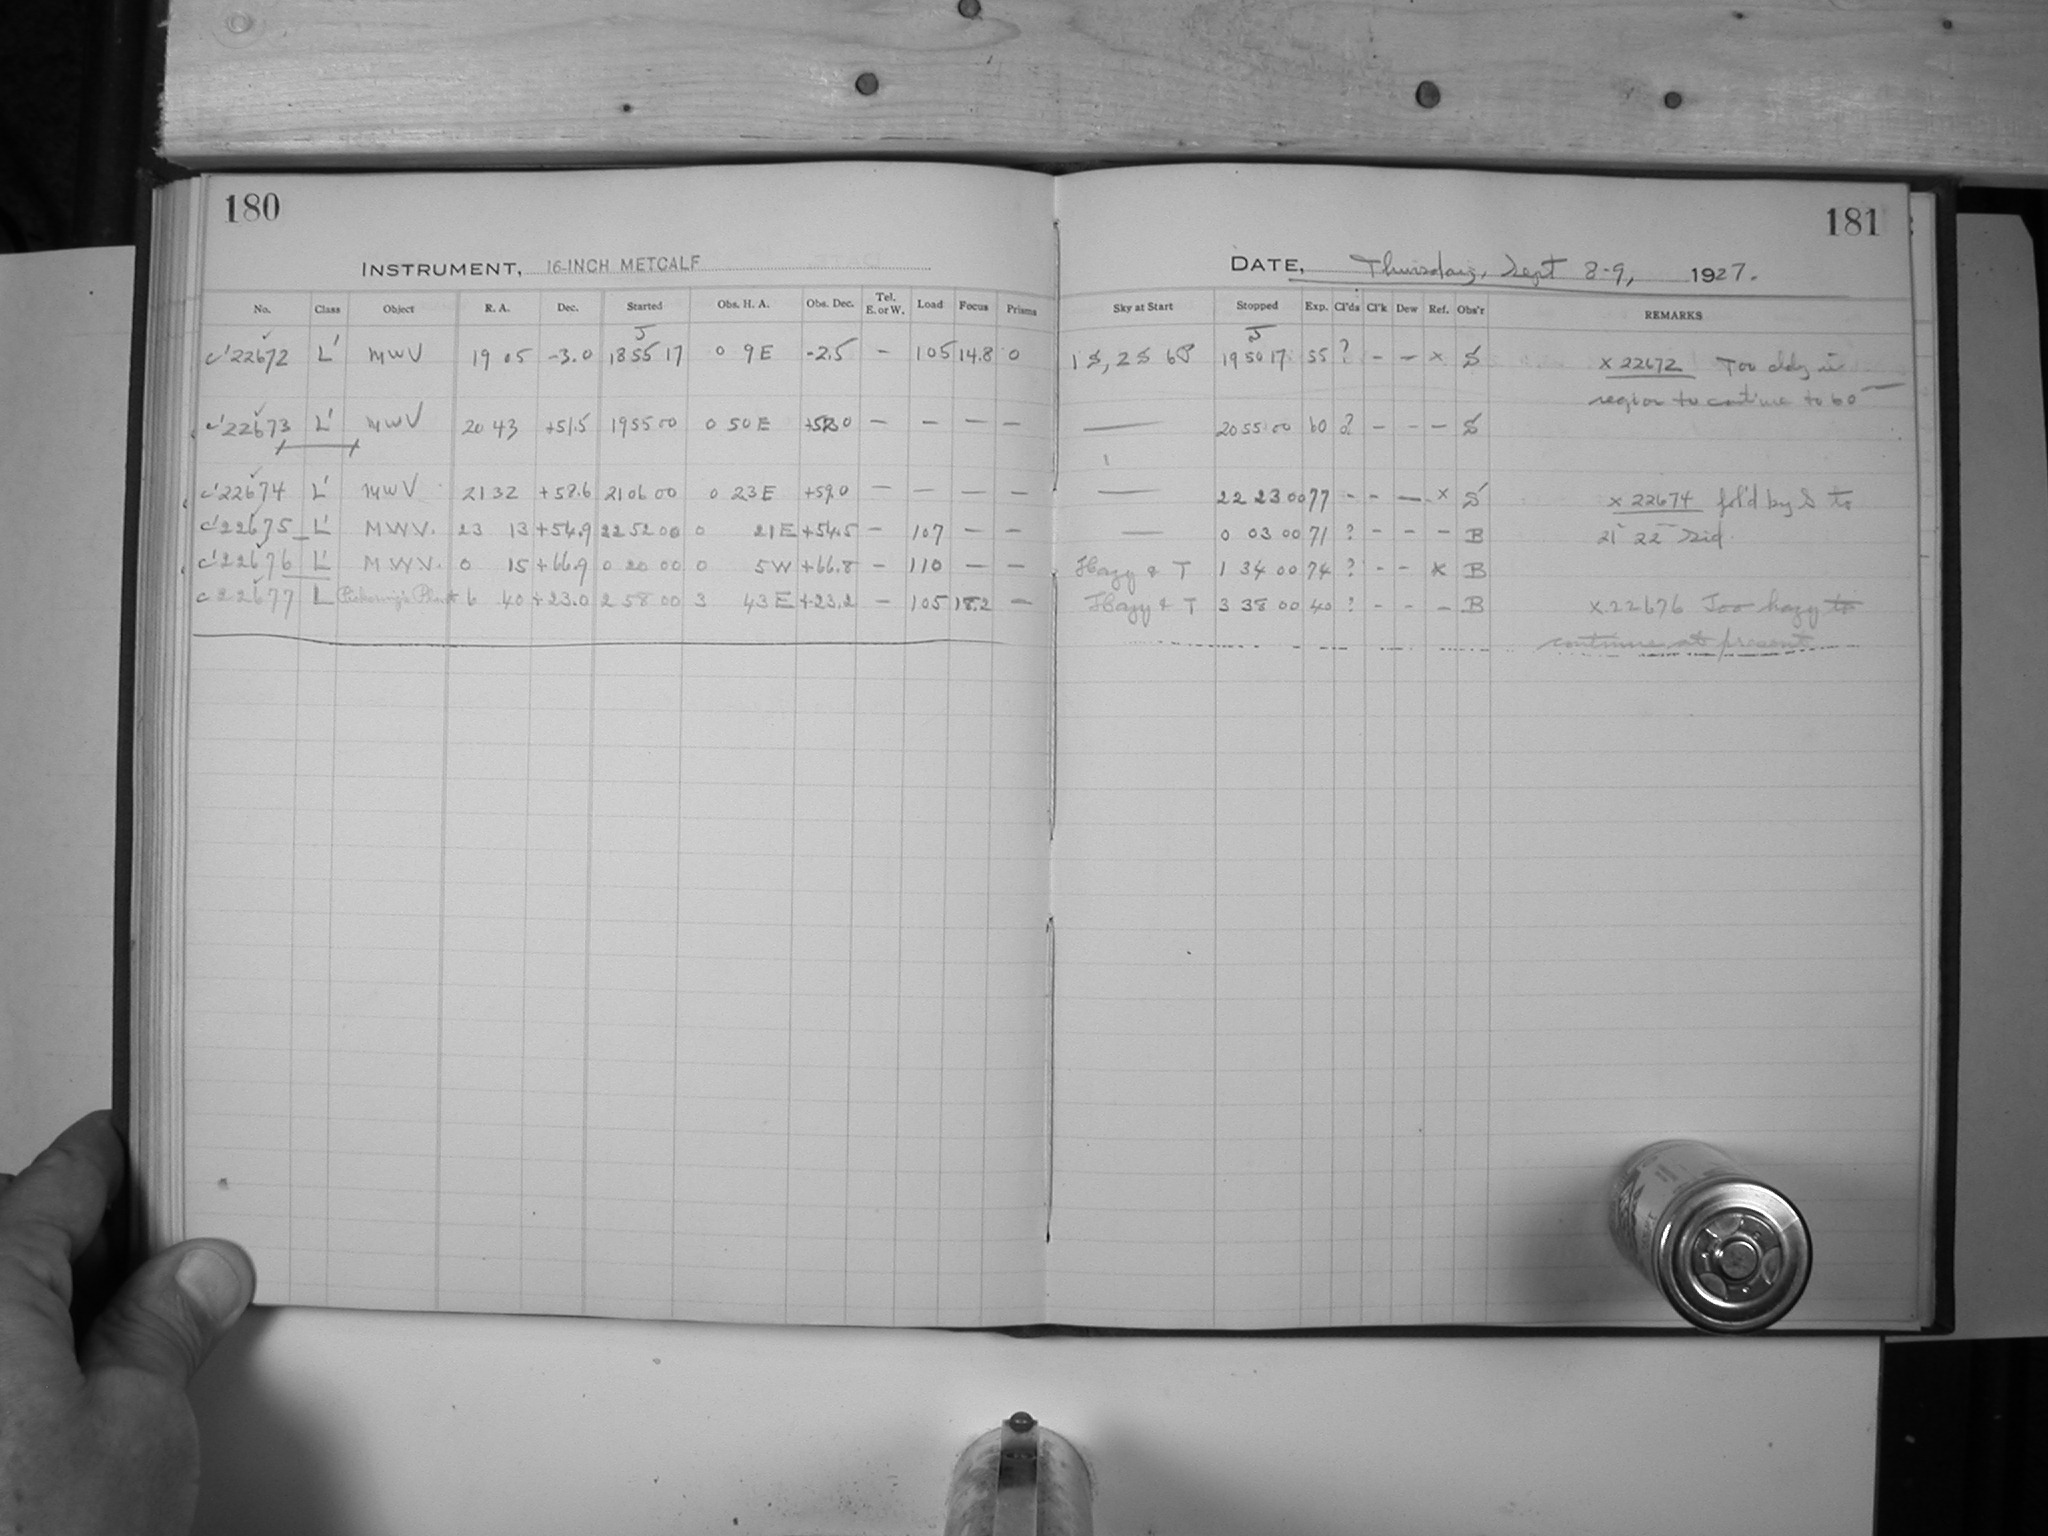 180
INSTRUMENT, 16-INCH METCALF
No. Class Object R. A. Dec. Started Obs. H. A. Obs. Dec. Tel. E. or W. Load Focus Prisms
J
c'22672 L' MWV 19 05 -3.0 18 55 17 0 9 E -2.5 - 105 14.8 0
c'22673 L' MWV 20 43 +51.5 19 55 00 0 50 E - - - -
c'22674 L' MWV 21 32 +58.6 21 06 00 0 23 E +59.0 - - - -
c'22675 L' M.W.V. 23 13 +54.9 22 52 00 0 21 E +54.5 - 107 - -
c'22676 L' M.W.V. 0 15 +66.9 0 20 00 0 5 W +66.8 - 110 - -
c22677 L Pickering's Planet 6 40 +23.0 2 58 00 3 43 E +23.2 - 105 18.2 -
181
DATE, Thursday, Sept 8-9, 1927.
Sky at Start Stopped Exp. Cl'ds Cl'k Dew Ref. Obs'r REMARKS
J
1S, 2S 6P 19 50 17 55 ? - - x S x 22672 Too cldy in
region to continue to 60
— 20 55 00 60 ? - - - S
— 22 23 00 77 - - - x S x 22674 fol'd by S to
— 0 03 00 71 ? - - - B 21 22 Sid.
Hazy & T 1 34 00 74 ? - - x B
Hazy & T 3 38 00 40 ? - - - B x 22676 Too hazy to
continue at present